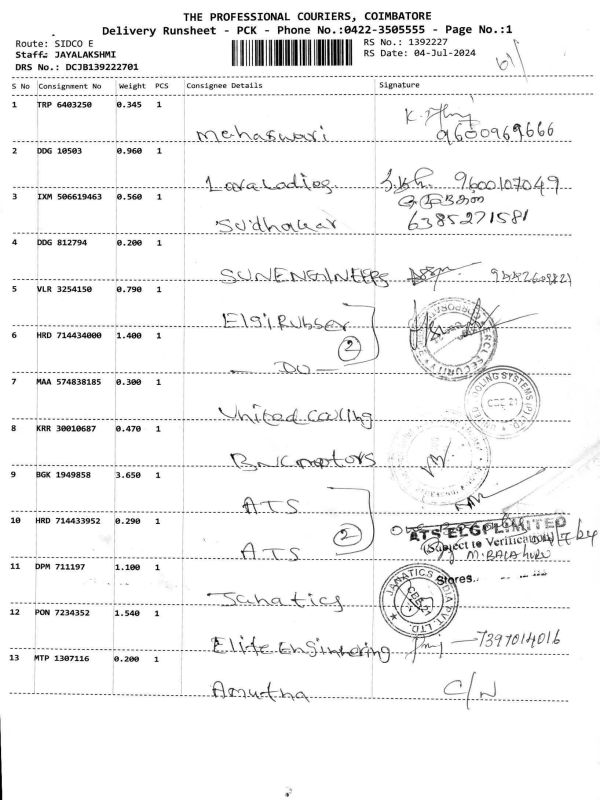 THE PROFESSIONAL COURIERS, COIMBATORE
Delivery Runsheet - PCK - Phone No.:0422-3505555 - Page No.:1
Route: SIDCO E
RS No.: 1392227
Staff: JAYALAKSHMI
RS Date: 04-Jul-2024
DRS No.: DCJB139222701
S No Consignment No Weight PCS Consignee Details Signature
1 TRP 6403250 0.345 1
Mahaswari 9600969666
2 DDG 10503 0.960 1
Lara Ladies 9600107049
3 IXM 506619463 0.560 1
Sudhakar 6385271581
4 DDG 812794 0.200 1
SUNENGINEERS
5 VLR 3254150 0.790 1
Elgi Rubber
6 HRD 714434000 1.400 1
2
DO
7 MAA 574838185 0.300 1
United Cooling
8 KRR 30010687 0.470 1
BNC motors
9 BGK 1949858 3.650 1
ATS
10 HRD 714433952 0.290 1
2
ATS ELGI LIMITED
(Subject to Verification)
ATS
11 DPM 711197 1.100 1
Stores
Janatics
JANATICS INDIA PVT. LTD.
12 PON 7234352 1.540 1
Elite Engineering 7397014016
13 MTP 1307116 0.200 1
Amutha C/N